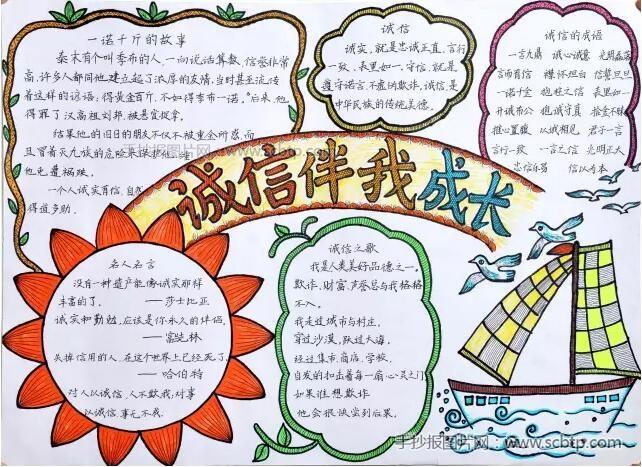 一诺千斤的故事
秦末有个叫季布的人,一向说话算数,信誉非常
高,许多人都同他建立起了浓厚的友情,当时甚至流传
着这样的谚语:得黄金百斤,不如得季布一诺。"后来,他
得罪了汉高祖刘邦,被悬赏捉拿。
结果他的旧日的朋友不仅不被重金所惑,而
且冒着灭九族的危险来保护他,
他免遭祸殃。
一个人诚实有信,自然
得道多助。
诚信
诚实,就是忠诚正直,言行
一致,表里如一,守信,就是
遵守诺言,不虚伪欺诈,诚信,是
中华民族的传统美德。
诚信的成语
一言九鼎 诚心诚意 光明磊落
言而有信 襟怀坦白 信誓旦旦
一诺千金 抱柱之信 表里如一
开诚布公 抱诚守真 拾金不昧
推心置腹 以诚相见 君子一言
言行一致 一言之信 光明正大
忠信乐易 信以为本
诚信伴我成长
名人名言
没有一种遗产能像诚实那样
丰富的了。
——莎士比亚
诚实和勤勉,应该是你永久的伴侣。
——富兰林
失掉信用的人,在这个世界上已经死了。
——哈伯特
对人以诚信,人不欺我;对事
以诚信,事无不成。
诚信之歌
我是人类美好品德之一。
欺诈,财富,声誉总与我格格
不入。
我走过城市与村庄,
穿过沙漠,跃过大海,
经过集市,商店,学校,
自发的扣击着每一扇心灵之门
如果谁想欺诈
他会很快尝到后果。
手抄报图片网:www.scbtp.com